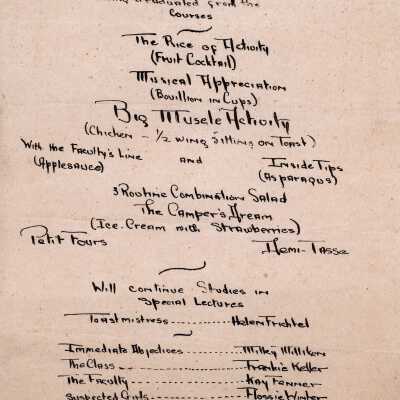 graduated from the
Courses
The Rice of Activity
(Fruit Cocktail)
Musical Appreciation
(Bouillion in Cups)
Big Muscle Activity
(Chicken - 1/2 wing sitting on Toast)
With the Faculty's Line and Inside Tips
(Applesauce) (Asparagus)
3 Routine Combination Salad
The Camper's Dream
(Ice-Cream with Strawberries)
Petit Fours Demi-Tasse
Will continue Studies in
Special Lectures
Toastmistress --------- Helen Frichtel
Immediate Objectives --------- Milky Milliken
The Class --------- Frankie Keller
The Faculty --------- Kay Fenner
Suspected Girls --------- Flossie Winter